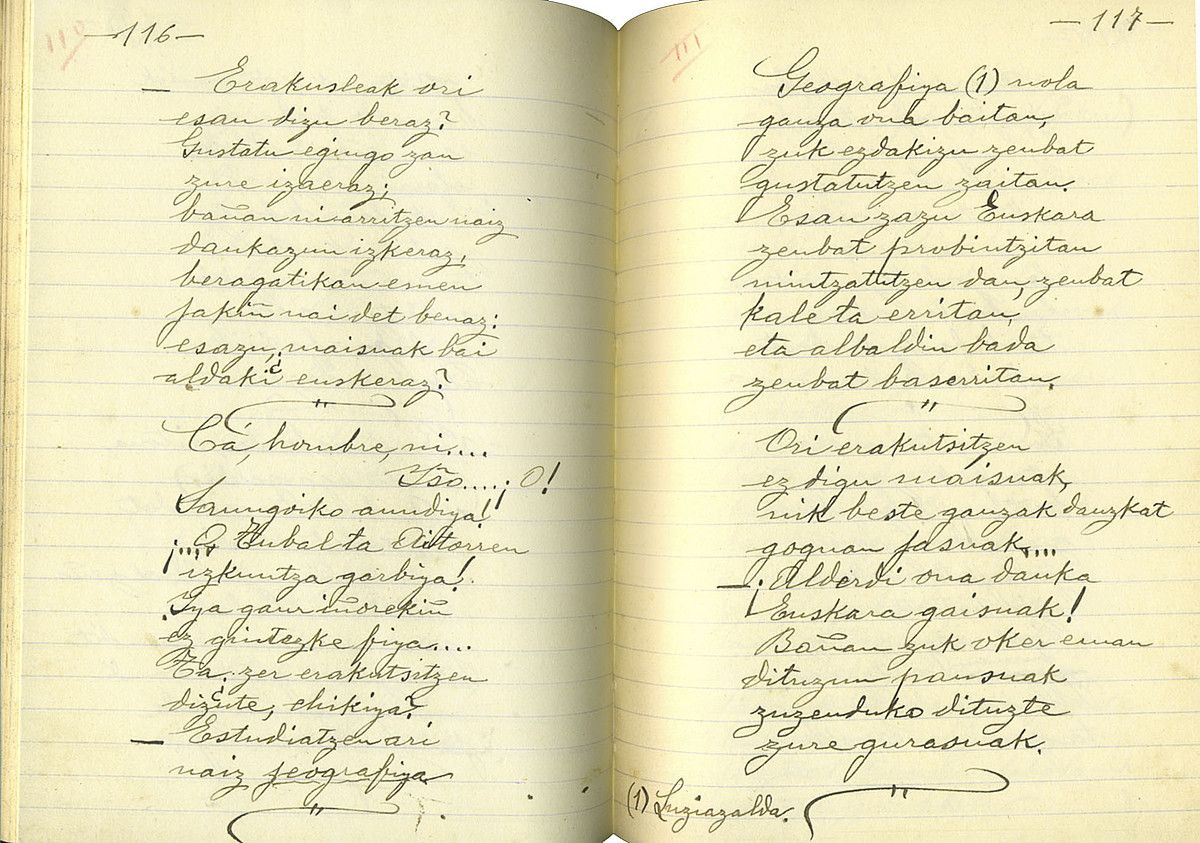 110
—116—
— Erakusleak ori
esan dizu beraz?
Gustatu egingo zan
zure izaeraz;
bañan ni arritzen naiz
daukazun izkeraz,
beragatikan emen
jakiñ nai det beraz:
esazu, ¿maisuak bai
aldaki euskeraz?
"
Cá, hombre, ni....
Iso.....¡O!
Jaungoiko aundiya!
¡....O, Tubal ta Aitorren
izkuntza garbiya!.
Iya gaur iñorekiñ
ez gintezke fiya....
Ta, ¿zer erakutsitzen
dizute, chikiya?
— Estudiatzen ari
naiz jeografiya
"
111
—117—
Geografiya (1) nola
gauza ona baitan,
zuk ezdakizu zenbat
gustatutzen zaitan.
Esan zazu Euskara
zenbat probintzitan
mintzatutzen dan, zenbat
kale ta erritan,
eta albaldin bada
zenbat baserritan.
"
Ori erakutsitzen
ez digu maisuak,
nik beste gauzak dauzkat
goguan jasuak....
—¡Alderdi ona dauka
Euskara gaisuak!
Bañan zuk oker eman
dituzun pausuak
zuzenduko dituzte
zure gurasuak.
"
(1) Luziazalda.